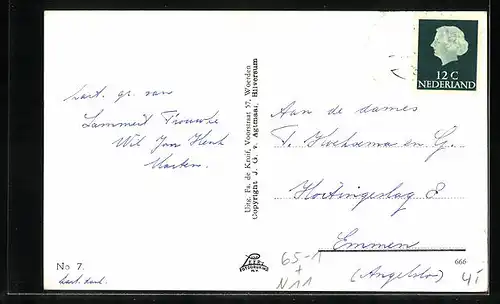 hart. gr. van
Lammert Trouwke
Wil Jan Henk
Marten.
No 7.
hart. dank.
Uitg. Fa. de Kruif, Voorstraat 57, Woerden
Copyright J. G. v. Agtmaal, Hilversum
12 C
NEDERLAND
Aan de dames
T. Hoeksema en G.
Haitingeslag 8
Emmen
(Angelslo)
666
65-1
+
N11
41